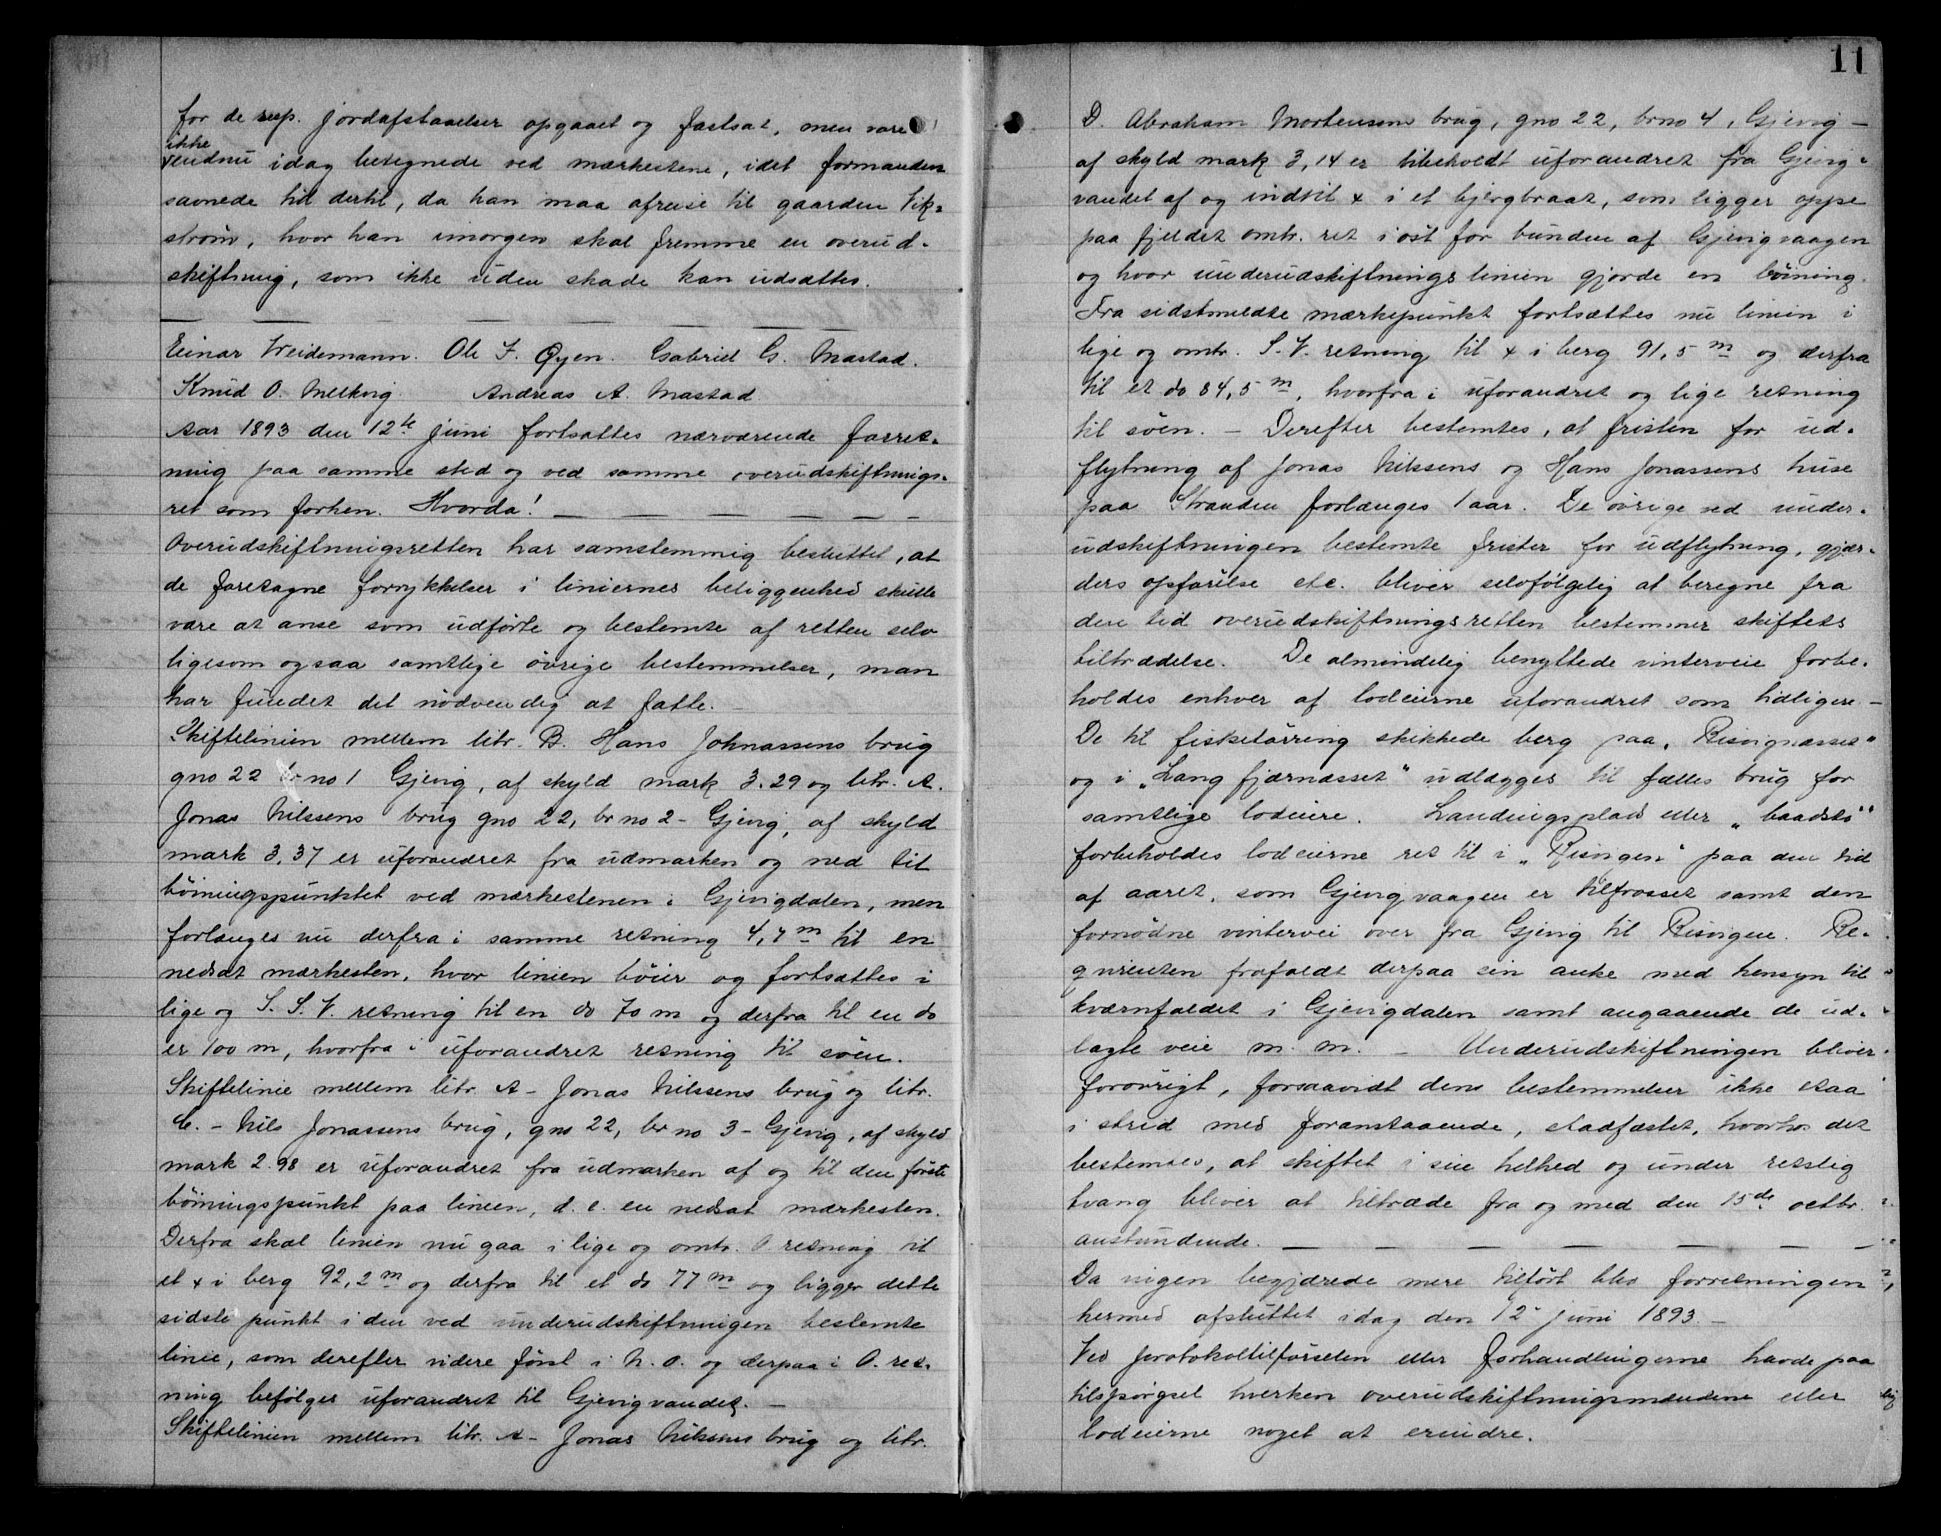 for de resp. jordafstaaelser opgaaet og fastsat, men vare
ikke
endnu idag betegnede ved mærkestene, idet formanden
savnede tid dertil, da han maa afreise til gaarden Vik-
strøm, hvor han imorgen skal fremme en overud-
skiftning, som ikke uden skade kan udsættes.
Einar Weidemann. Ole F. Øyen. Gabriel G. Mastad.
Knud O. Melkvig Andreas A. Mastad
Aar 1893 den 12te juni fortsattes nærværende forret-
ning paa samme sted og ved samme overudskiftnings-
ret som forhen. Hvorda! — — — — — —
Overudskiftningsretten har samstemmig besluttet, at
de foretagne forrykkelser i liniernes beliggenhed skulle
være at anse som udførte og bestemte af retten selv
ligesom ogsaa samtlige øvrige bestemmelser, man
har fundet det nødvendig at fatte. —
Skiftelinien mellem litr. B. Hans Johnassens brug
gno 22 br no 1 Gjevig, af skyld mark 3.29 og litr. A.
Jonas Nilssens brug gno 22, br no 2 - Gjevig, af skyld
mark 3,37 er uforandret fra udmarken og ned til
bøiningspunktet ved mærkestenen i Gjevigdalen, men
forlænges nu derfra i samme retning 4,7 m til en
nedsat mærkesten, hvor linien bøier og fortsættes i
lige og S. S. V. retning til en do 70 m og derfra til en do
er 100 m, hvorfra i uforandret retning til søen.
Skiftelinie mellem litr. A - Jonas Nilssens brug og litr.
C. - Nils Jonassens brug, gno 22, br no 3 - Gjevig, af skyld
mark 2.98 er uforandret fra udmarken af og til den første
bøiningspunkt paa linien, d. e. en nedsat mærkesten.
Derfra skal linien nu gaa i lige og omtr. O retning til
et x i berg 92,2 m og derfra til et do 77 m og ligger dette
sidste punkt i den ved underudskiftningen bestemte
linie, som derefter videre først i N. O. og derpaa i O. ret-
ning befølges uforandret til Gjevigvandet. —
Skiftelinien mellem litr. A - Jonas Nilssens brug og litr.
11
D. Abraham Mortensens brug, gno 22, brno 4, Gjevig —
af skyld mark 3,14 er tilbeholdt uforandret fra Gjevig-
vandet af og indtil x i et bjergbraat, som ligger oppe
paa fjeldet omtr. ret i øst for bunden af Gjevigvaagen
og hvor underudskiftningslinien gjorde en bøining.
Fra sidstmeldte mærkepunkt fortsættes nu linien i
lige og omtr. S. V. retning til x i berg 91,5 m og derfra
til et do 84,5 m, hvorfra i uforandret og lige retning
til søen. — Derefter bestemtes, at fristen for ud-
flytning af Jonas Nilssens og Hans Jonassens huse
paa Stranden forlænges 1 aar. De øvrige ved under-
udskiftningen bestemte frister for udflytning, gjær-
ders opførelse etc. bliver selvfølgelig at beregne fra
den tid overudskiftningsretten bestemmer skiftets
tiltrædelse. De almindelig benyttede vinterveie forbe-
holdes enhver af lodeierne uforandret som tidligere —
De til fisketørring skikkede berg paa „Risvignæsset"
og i „Langfjærnæsset" udlægges til fælles brug for
samtlige lodeiere. Landingsplads eller „baadstø"
forbeholdes lodeierne ret til i „Risvigen" paa den tid
af aaret, som Gjevigvaagen er tilfrosset samt den
fornødne vintervei over fra Gjevig til Risvigen. Re-
qvirenten frafaldt derpaa sin anke med hensyn til
kværnfaldet i Gjevigdalen samt angaaende de ud-
lagte veie m. m. — Underudskiftningen bliver
forøvrigt, forsaavidt dens bestemmelser ikke staa
i strid med foranstaaende, stadfæstet, hvorhos det
bestemtes, at skiftet i sin helhed og under retslig
tvang bliver at tiltræde fra og med den 15de octbr.
anstundende. — — — — — —
Da ingen begjærede mere tilført blev forretningen
hermed afsluttet idag den 12 juni 1893. —
Ved protokoltilførselen eller forhandlingerne havde paa
tilspørgsel hverken overudskiftningsmændene eller
lodeierne noget at erindre.